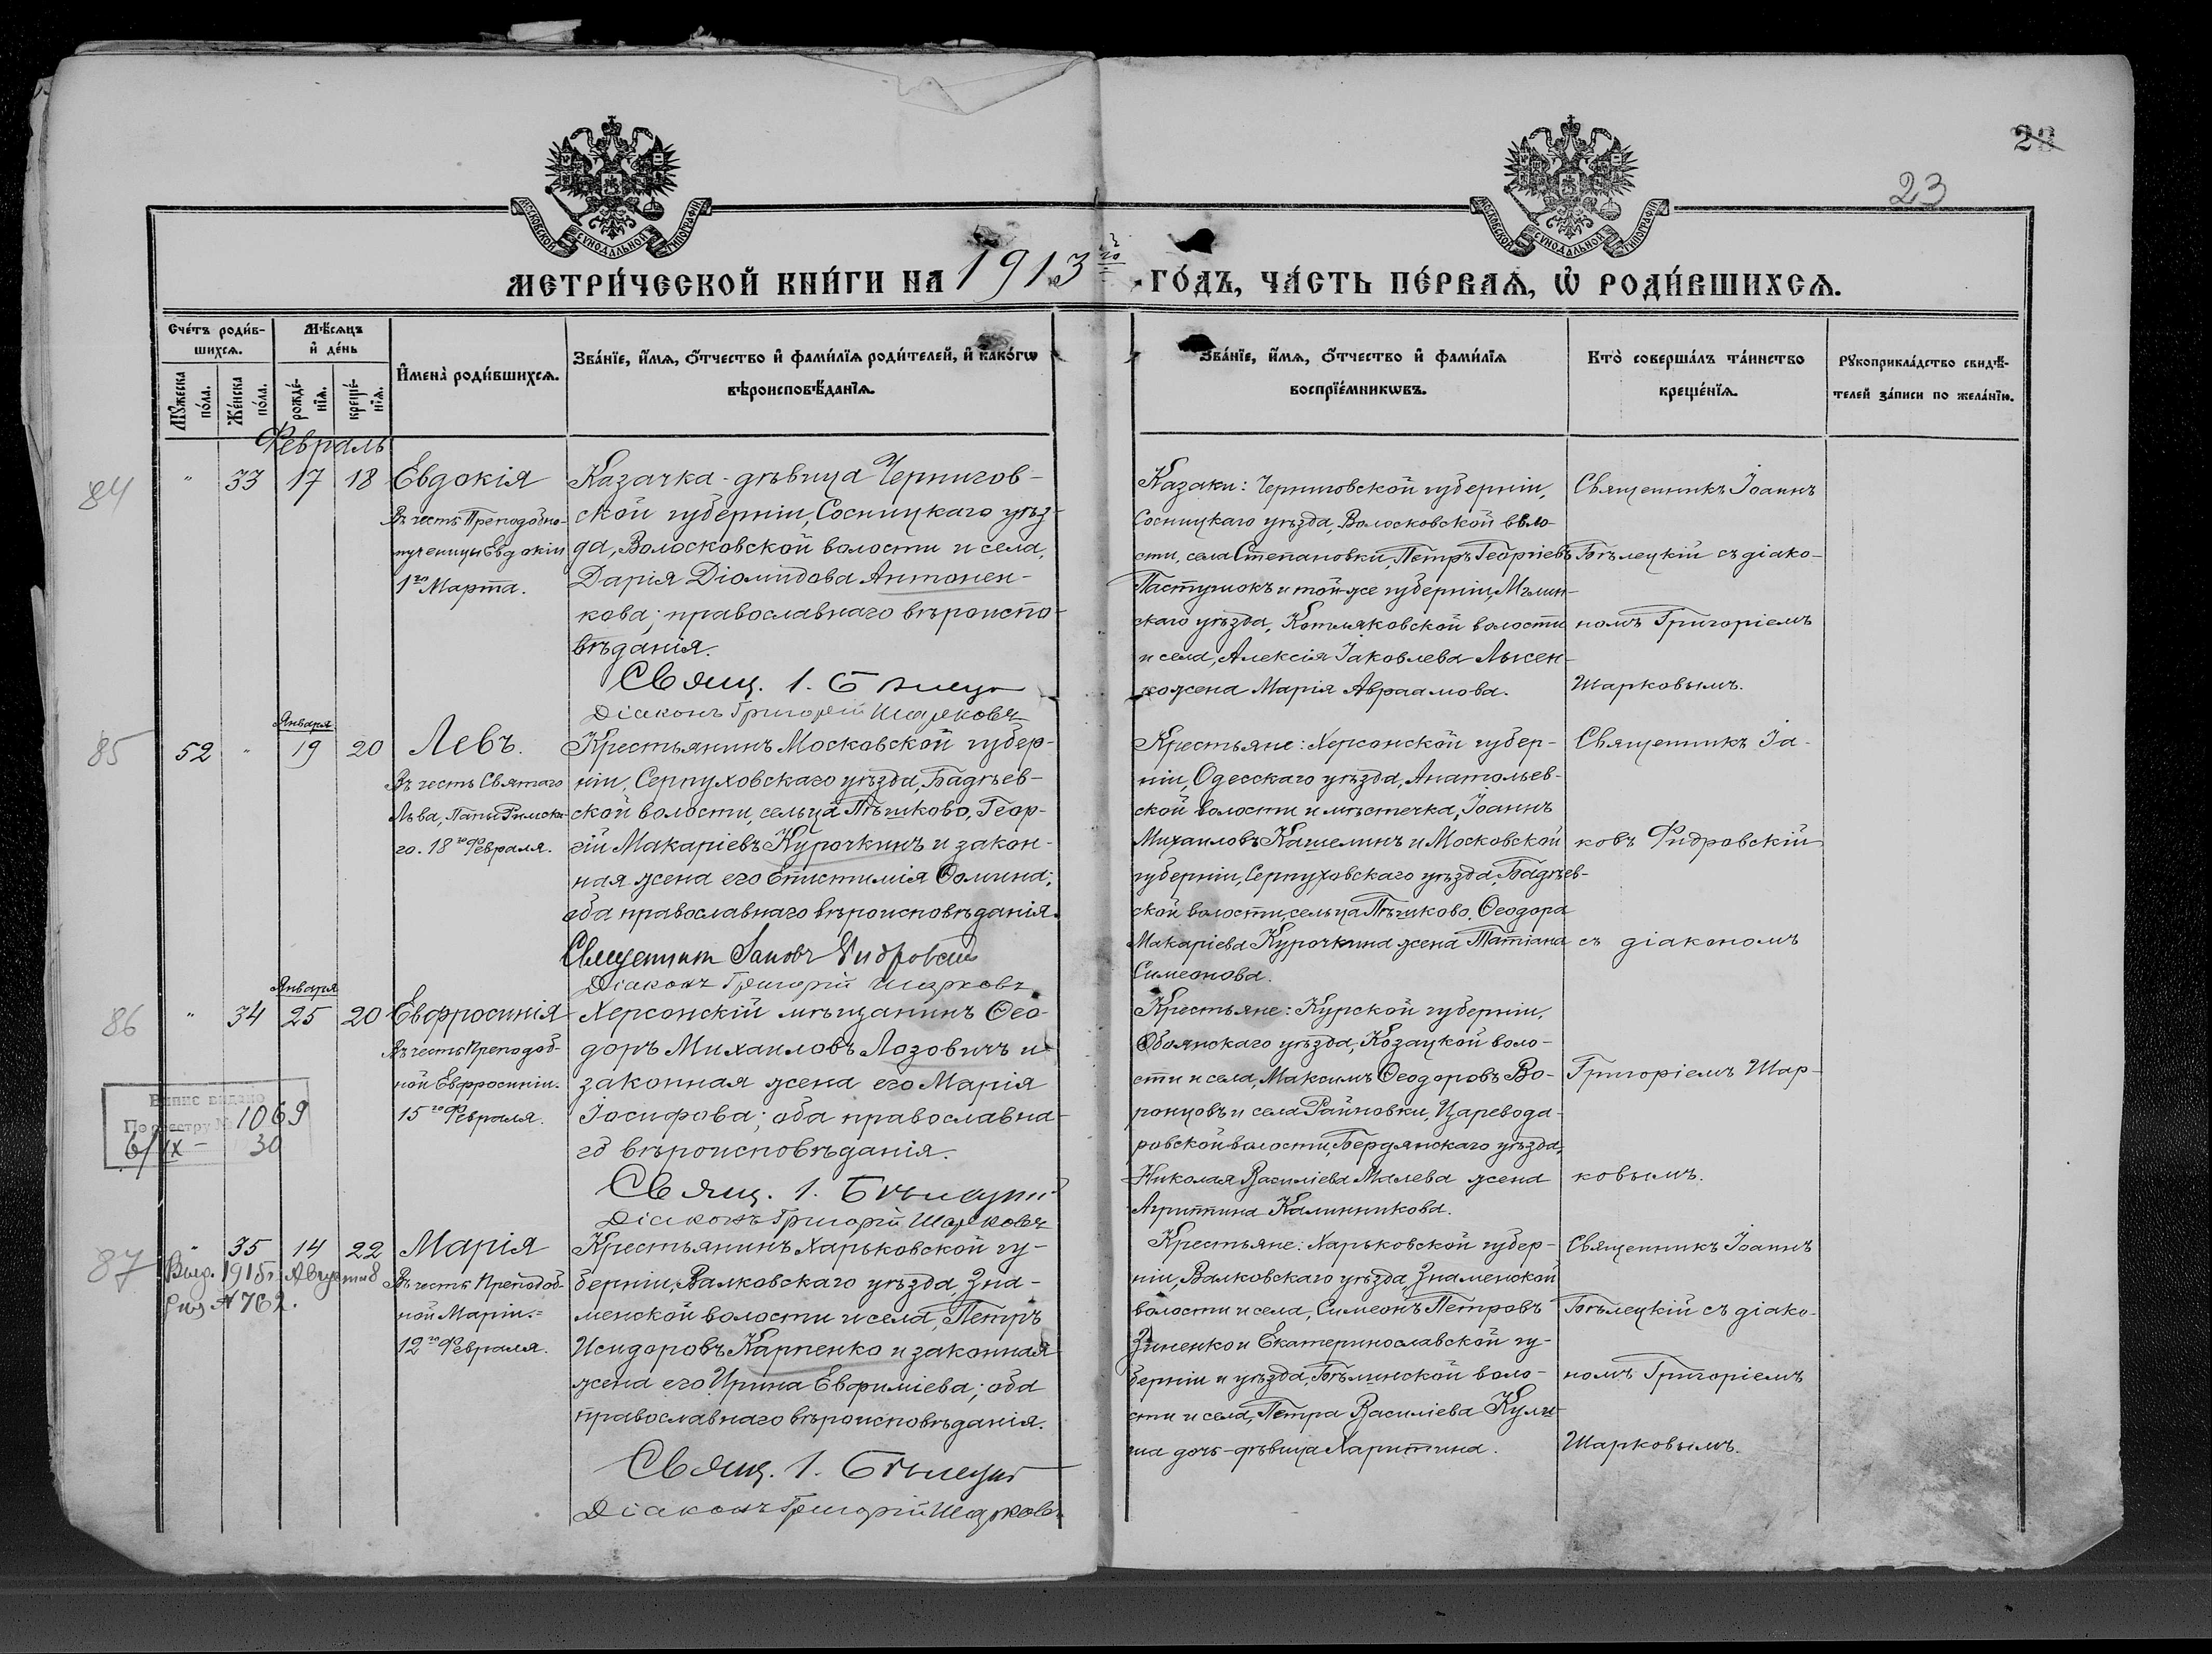 28
23
МОСКОВСКОЙ СѴНОДАЛЬНОЙ ТИПОГРАФІИ
МОСКОВСКОЙ СѴНОДАЛЬНОЙ ТИПОГРАФІИ
МЕТРИ́ЧЕСКОЙ КНИ́ГИ НА 1913го ГО́ДЪ, ЧА́СТЬ ПЕ́РВАѦ, Ѡ҆ РОДИ́ВШИХСѦ.
Сче́тъ роди́в-
шихсѧ.
Мꙋ́жеска по́ла.
Же́нска по́ла.
Мѣ́сѧцъ
и҆ де́нь
рожде́-
нїѧ.
креще́-
нїѧ.
И҆мена̀ роди́вшихсѧ.
Зва́нїе, и҆́мѧ, ѻ҆́тчество и҆ фами́лїѧ роди́телей, и҆ како́гѡ
вѣроисповѣ́данїѧ.
Зва́нїе, и҆́мѧ, ѻ҆́тчество и҆ фами́лїѧ
воспрїе́мникѡвъ.
Кто̀ соверша́лъ та́инство
креще́нїѧ.
Рꙋкоприкла́дство свидѣ́-
телей за́писи по жела́нїю.
Февраль
84
" 33 17 18
Евдокія
Въ честь Преподобно-
мученицы Евдокіи
1го Марта.
Казачка-дѣвица Чернигов-
ской губерніи, Сосницкаго уѣз-
да, Волосковской волости и села,
Дарія Діомидова Антонен-
кова; православнаго вѣроиспо-
вѣданія.
Свящ. І. Бѣлец
Діаконъ Григорій Шарковъ
Казаки: Черниговской губерніи,
Сосницкаго уѣзда, Волосковской воло-
сти, села Степановки, Петръ Георгіевъ
Пастушокъ и той же губерніи, Мглин-
скаго уѣзда, Котляковской волости
и села, Алексія Іаковлева Лысен-
ко жена Марія Авраамова.
Священникъ Іоаннъ
Бѣлецкій съ діако-
номъ Григоріемъ
Шарковымъ.
85
Января
52 " 19 20
Левъ.
Въ честь Святаго
Льва, Папы Римска-
го. 18го Февраля.
Крестьянинъ Московской губер-
ніи, Серпуховскаго уѣзда, Бадѣев-
ской волости, сельца Пѣшково, Геор-
гій Макаріевъ Курочкинъ и закон-
ная жена его Епистимія Ѳомина;
оба православнаго вѣроисповѣданія.
Священникъ Іаковъ Фидровскій
Діаконъ Григорій Шарковъ
Крестьяне: Херсонской губер-
ніи, Одесскаго уѣзда, Анатольев-
ской волости и мѣстечка, Іоаннъ
Михаиловъ Кашелинъ и Московской
губерніи, Серпуховскаго уѣзда, Бадѣев-
ской волости, сельца Пѣшково, Ѳеодора
Макаріева Курочкина жена Татіана
Симеонова.
Священникъ Іа-
ковъ Фидровскій
съ діакономъ
Григоріемъ Шар-
ковымъ.
86
Января
" 34 25 20
Евфросинія
Въ честь Преподоб-
ной Евфросиніи.
15го Февраля.
Випис видано
По реєстру № 1069
6/ІХ – 30
Херсонскій мѣщанинъ Ѳео-
доръ Михаиловъ Лозовичъ и
законная жена его Марія
Іосифова; оба православна-
го вѣроисповѣданія.
Свящ. І. Бѣлецкій
Діаконъ Григорій Шарковъ
Крестьяне: Курской губерніи,
Обоянскаго уѣзда, Козацкой воло-
сти и села, Максимъ Ѳеодоровъ Во-
ронцовъ и села Райновки, Царевода-
ровской волости, Бердянскаго уѣзда,
Николая Василіева Малева жена
Агриппина Калинникова.
87
" 35 14 22
Выд. 1915г. Августа 8
№ 762.
Марія
Въ честь Преподоб-
ной Маріи.
12го Февраля.
Крестьянинъ Харьковской гу-
берніи, Валковскаго уѣзда, Зна-
менской волости и села, Петръ
Исидоровъ Карпенко и законная
жена его Ирина Евфиміева; оба
православнаго вѣроисповѣданія.
Свящ. І. Бѣлецкій
Діаконъ Григорій Шарковъ
Крестьяне: Харьковской губер-
ніи, Валковскаго уѣзда, Знаменской
волости и села, Симеонъ Петровъ
Зиненко и Екатеринославской гу-
берніи и уѣзда, Бѣлинской воло-
сти и села, Петра Василіева Кули-
ша дочь-дѣвица Харитина.
Священникъ Іоаннъ
Бѣлецкій съ діако-
номъ Григоріемъ
Шарковымъ.